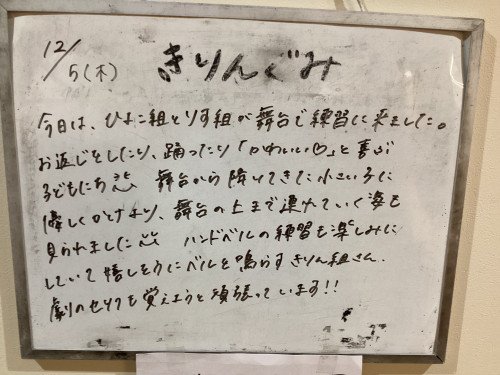 12/5(木) きりんぐみ
今日は、ひよこ組とりす組が舞台で練習に来ました。
お返事をしたり、踊ったり「かわいい♡」と喜ぶ
子どもたち 舞台から降りてきた小さい子に
優しくかけより、舞台の上まで連れていく姿も
見られました ハンドベルの練習も楽しみに
していて嬉しそうにベルを鳴らすきりん組さん.
劇のセリフも覚えようと頑張っています!!